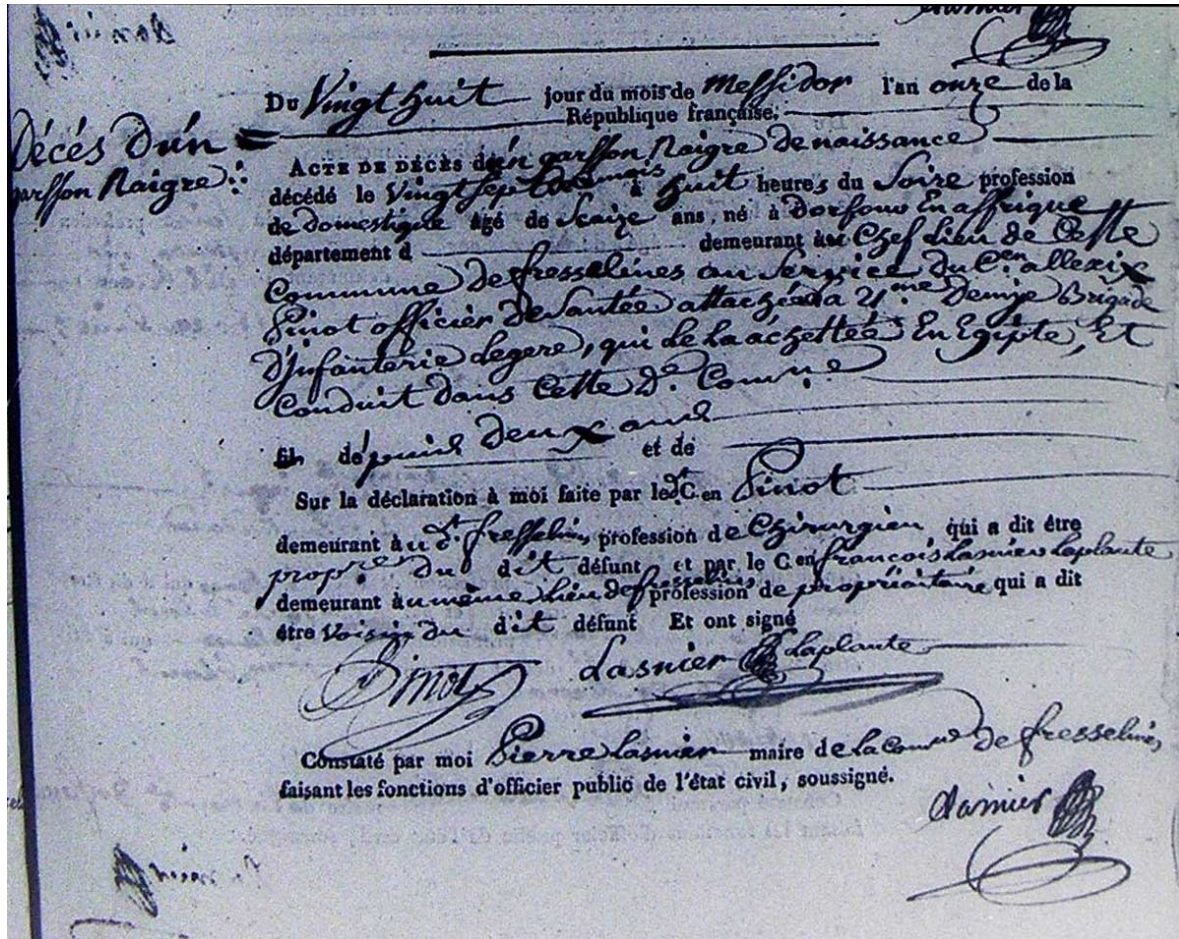 Du Vingt huit jour du mois de Messidor l'an onze de la
République française.
Décés D'un
garsson Naigre
ACTE DE DÉCÈS d'un garsson Naigre de naissance
décédé le Vingt Sept du mois à huit heures du Soire profession
de domestique âgé de Scaize ans, né à dorfouo En affrique
département d demeurant au Chef lieu de Cette
Commune de fresselines au Service du C.en allexix
Pinot officier de Santée attachéé a 21.me Demye Brigade
D'Infanterie legere, qui de la achettée En Egipte, Et
Conduit dans Cette D.e Comm.e
fil dépuis deux ans et de
Sur la déclaration à moi faite par le d.t C.en Pinot
demeurant au d.t fresselines profession de Chirurgien qui a dit être
propre du dit défunt et par le C.en francois Lasnier Laplante
demeurant au même lieu de fresselines profession de propriaitaire qui a dit
être Voisin du dit défunt Et ont signé
Pinot Lasnier Laplante
Constaté par moi Pierre Lasnier maire de la Com.ne de fresselines
faisant les fonctions d'officier public de l'état civil, soussigné.
Lasnier